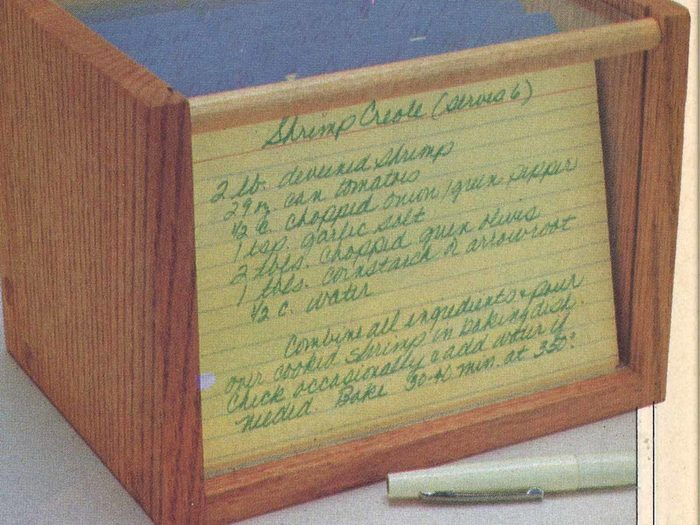 Shrimp Creole (serves 6)
2 lb. deveined shrimp
29 oz can tomatoes
1/2 c. chopped onion/green pepper
1 tsp. garlic salt
2 tbls. chopped green olives
1 tbls. cornstarch or arrowroot
1/2 c. water
Combine all ingredients & pour
over cooked shrimp in baking dish.
Check occasionally & add water if
needed. Bake 30-40 min. at 350°